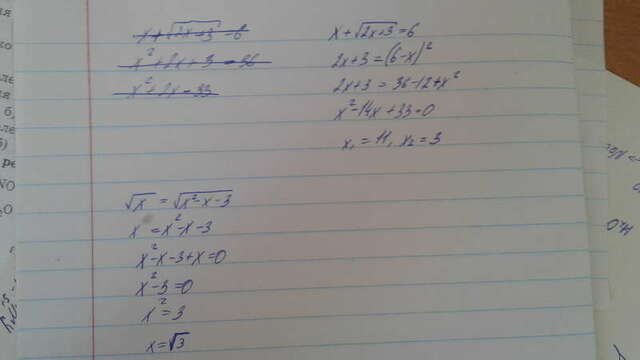 x+√(2x+3) = 6
x²+2x+3 = 36
x²+2x = 33
x+√(2x+3) = 6
2x+3 = (6-x)²
2x+3 = 36-12+x²
x²-14x+33=0
x₁ = 11, x₂ = 3
√x = √(x²-x-3)
x = x²-x-3
x²-x-3+x=0
x²-3=0
x² = 3
x=√3